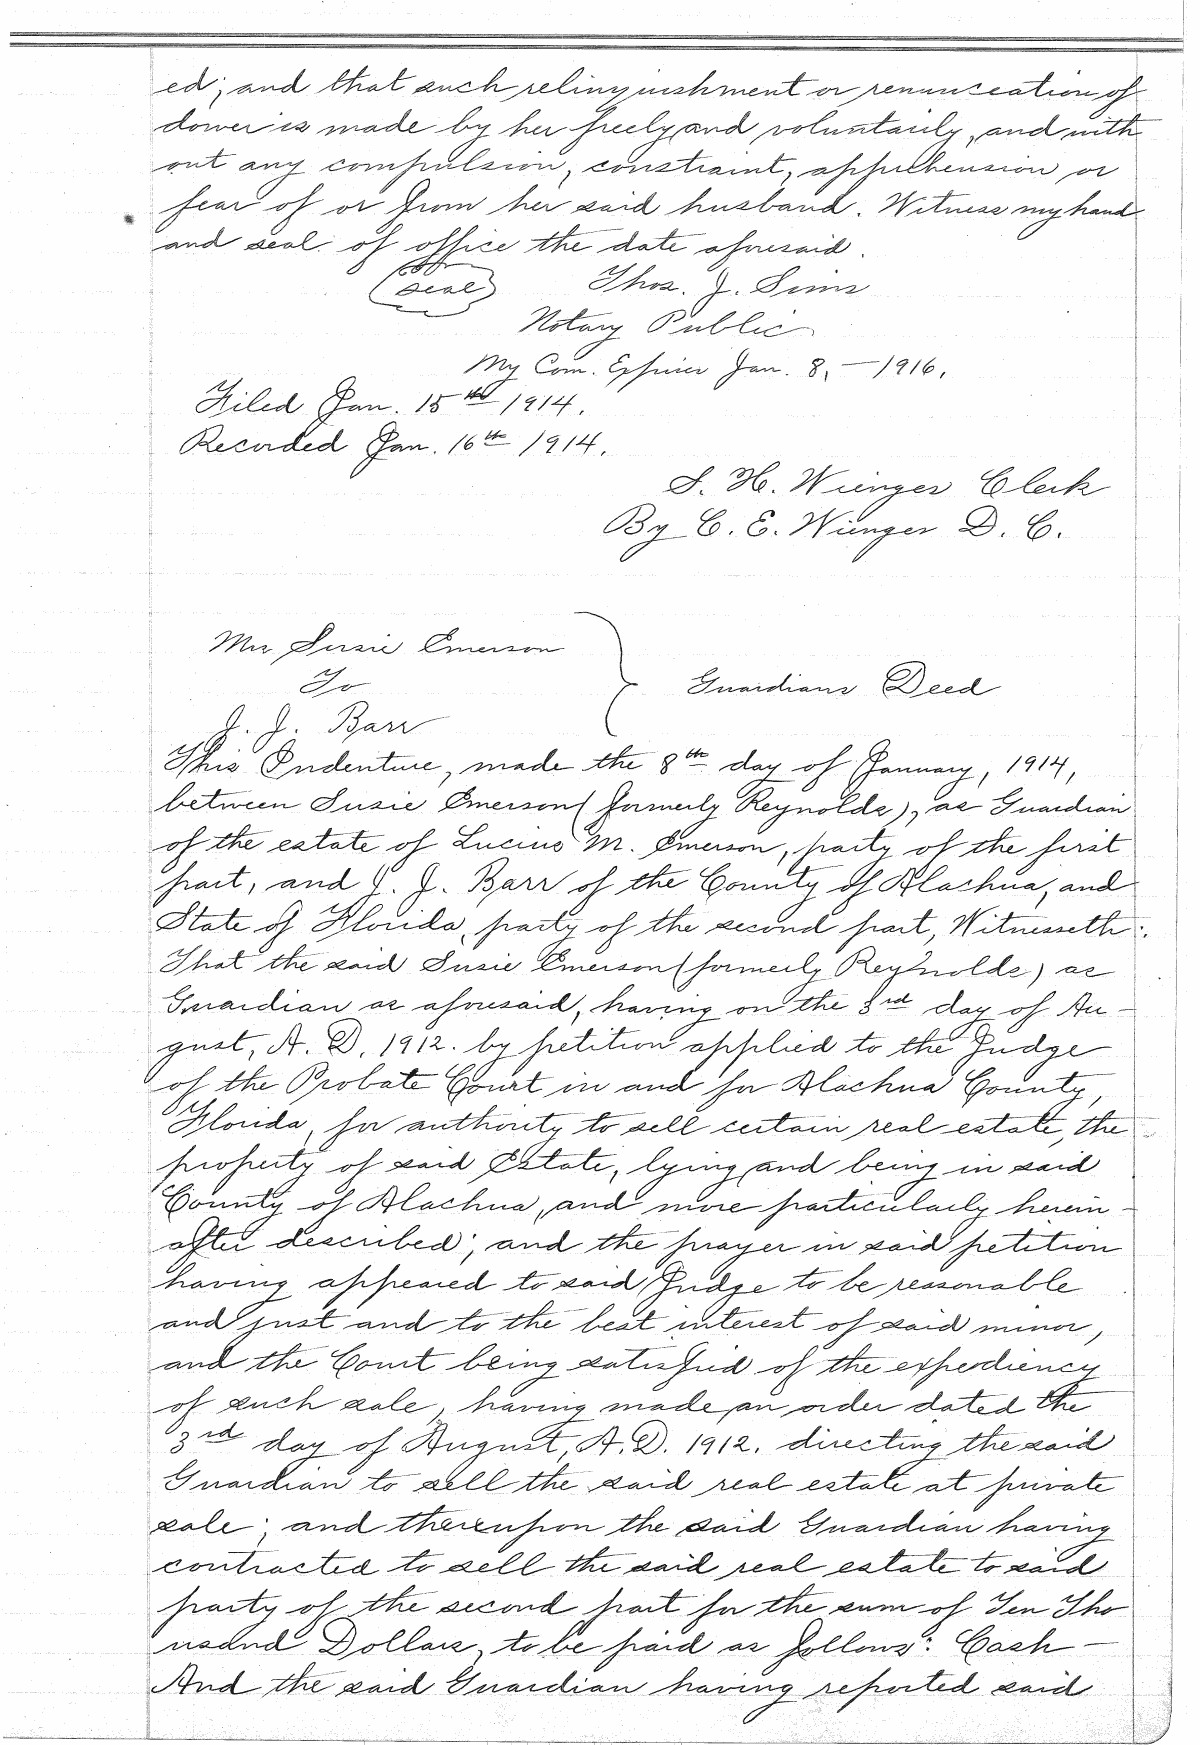 ed; and that such relinquishment or renunceation of
dower is made by her freely and voluntarily, and with
out any compulsion, constraint, apprehension or
fear of or from her said husband. Witness my hand
and seal of office the date aforesaid.
(seal) Thos. J. Sims
Notary Public
My Com. Expires Jan. 8, - 1916.
Filed Jan. 15th 1914.
Recorded Jan. 16th 1914.
S. H. Wienges Clerk
By C. E. Wienges D. C.
Mrs Susie Emerson
To Guardians Deed
J. J. Barr
This Indenture, made the 8th day of January, 1914,
between Susie Emerson (formerly Reynolds), as Guardian
of the estate of Lucius M. Emerson, party of the first
part, and J. J. Barr of the County of Alachua, and
State of Florida, party of the second part, Witnesseth:
That the said Susie Emerson (formerly Reynolds) as
Guardian as aforesaid, having on the 3rd day of Au-
gust, A. D. 1912. by petition applied to the Judge
of the Probate Court in and for Alachua County,
Florida, for authority to sell certain real estate, the
property of said Estate, lying and being in said
County of Alachua, and more particularly herein-
after described; and the prayer in said petition
having appeared to said Judge to be reasonable
and just and to the best interest of said minor,
and the Court being satisfied of the expediency
of such sale, having made an order dated the
3rd day of August, A.D. 1912. directing the said
Guardian to sell the said real estate at private
sale; and thereupon the said Guardian having
contracted to sell the said real estate to said
party of the second part for the sum of Ten Tho
usand Dollars, to be paid as follows: Cash -
And the said Guardian having reported said